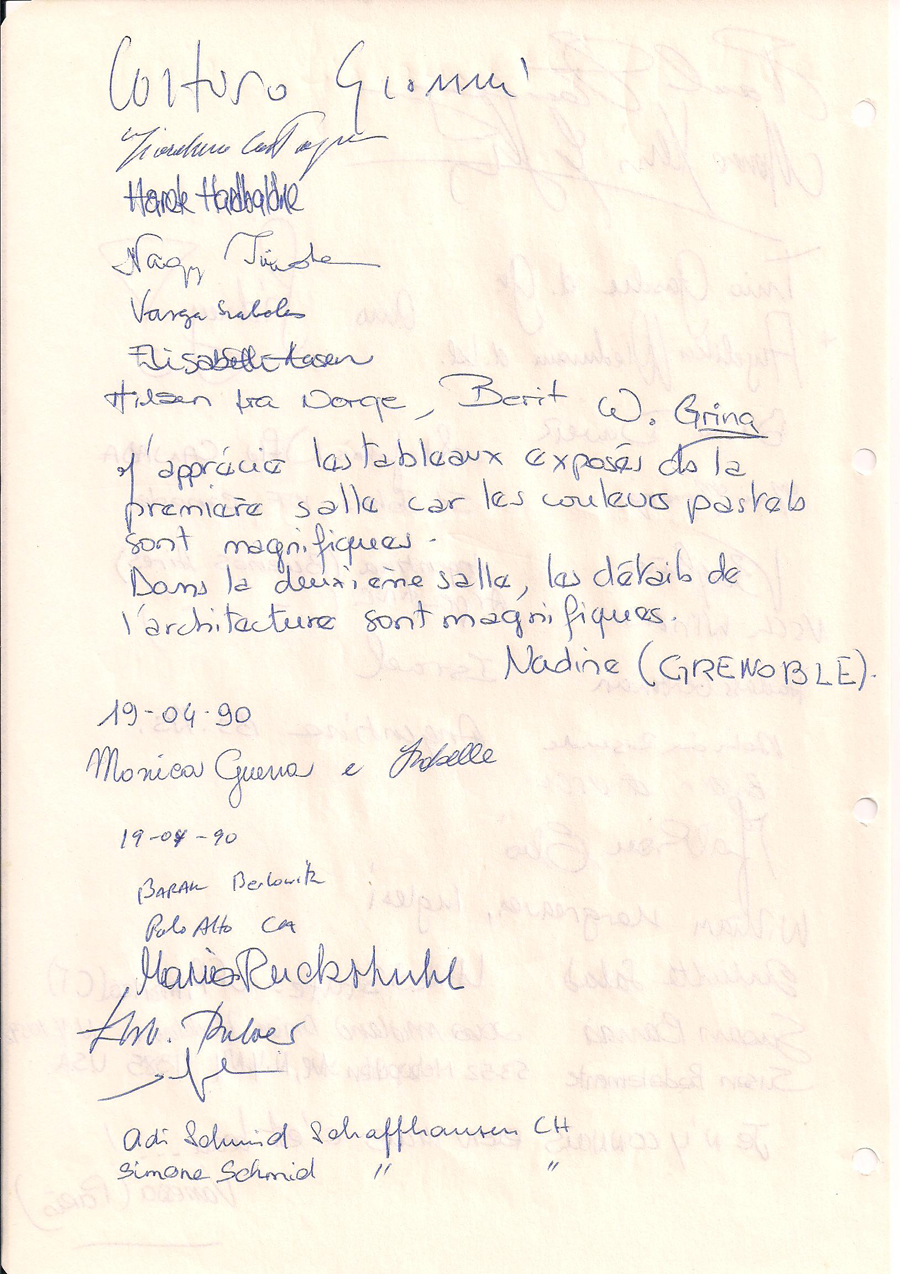 Costuro Gianni
Nagy Tünde
Varga Szabolcs
Elisabeth
Hilsen fra Norge, Berit W. Grina
J'apprécie les tableaux exposés ds la
première salle car les couleurs pastels
sont magnifiques.
Dans la deuxième salle, les détails de
l'architecture sont magnifiques.
Nadine (GRENOBLE).
19-04-90
Monica Guerra e Isabelle
19-04-90
BARAK Berkowitz
Palo Alto CA
Mario Ruckstuhl
Adi Schmid Schaffhausen CH
Simone Schmid " "